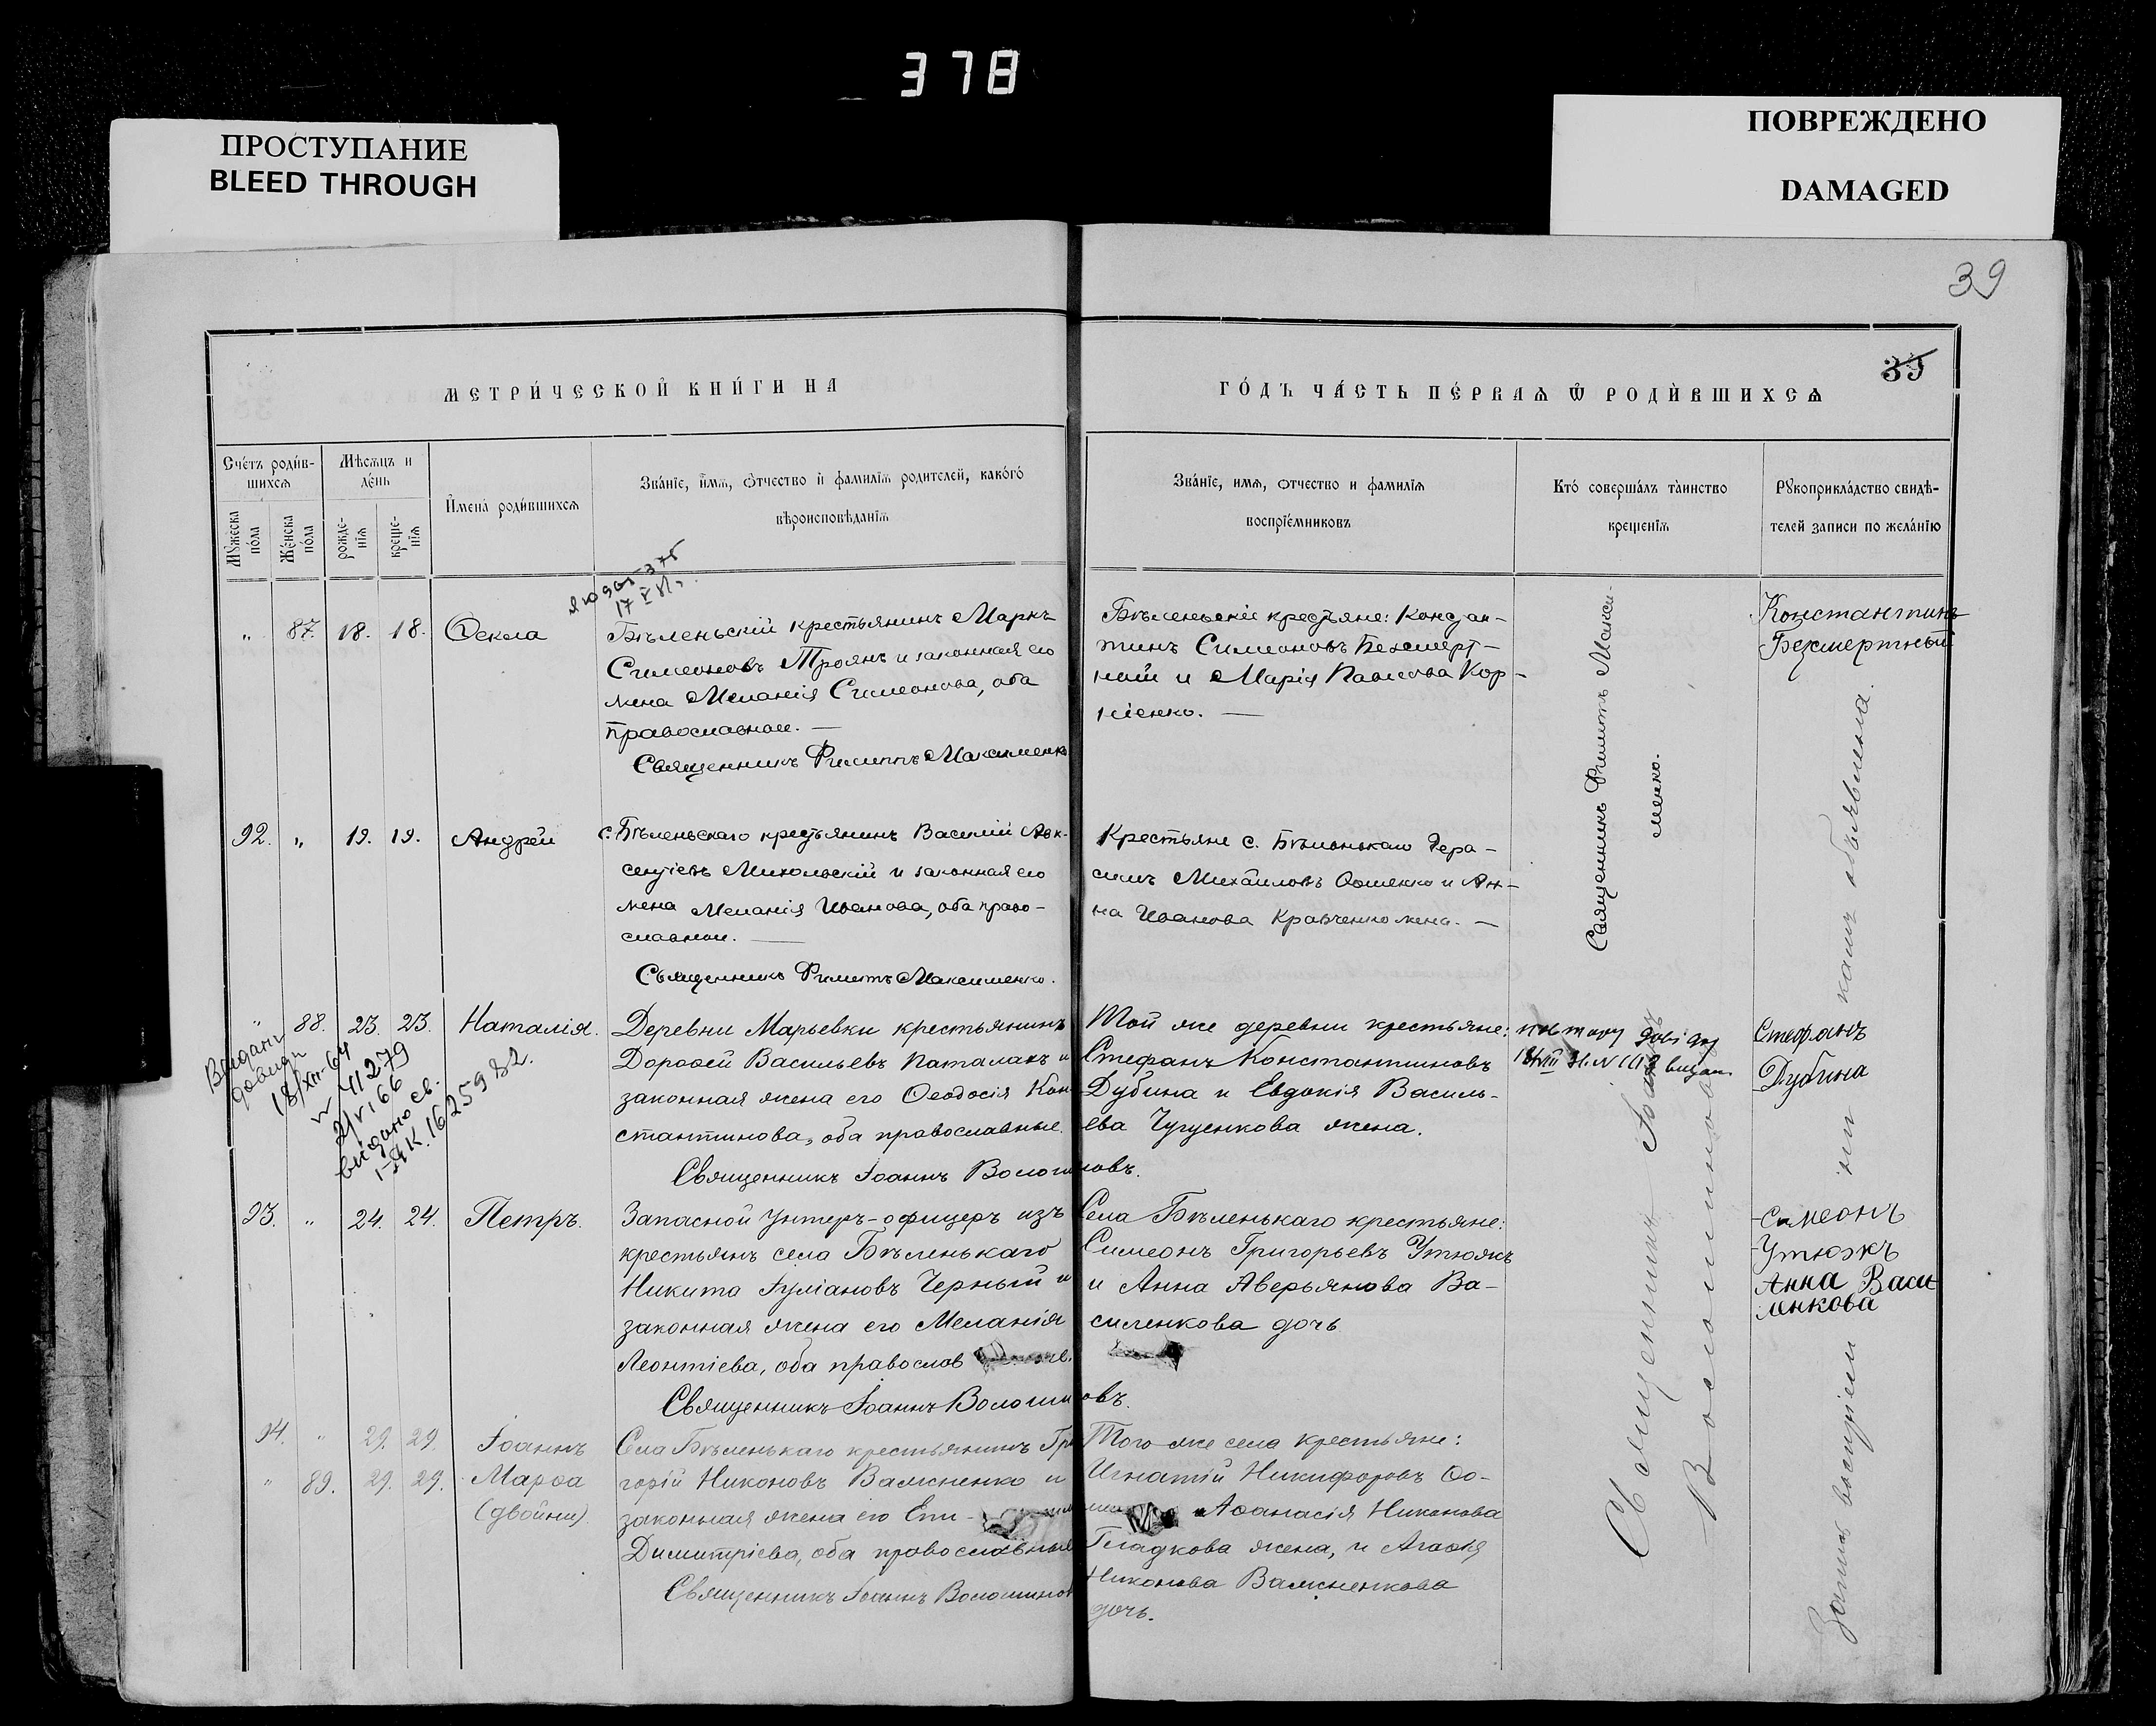 378
ПРОСТУПАНИЕ
BLEED THROUGH
ПОВРЕЖДЕНО
DAMAGED
39
39
МЕТРИ́ЧЕСКОЙ КНИ́ГИ НА
ГО́ДЪ ЧА́СТЬ ПЕ́РВАѦ Ѿ РОДИ́ВШИХСѦ
Сче́тъ роди́в-
шихсѧ
Мѣсѧцъ и
де́нь
Мꙋ́жеска по́ла
Же́нска по́ла
рожде-
нїѧ
креще-
нїѧ
И҆мена̀ роди́вшихсѧ
Зва́нїе, и҆́мѧ, ѻ҆́тчество и҆ фамилїѧ родителей, како́го
вѣроисповѣданїѧ
Зва́нїе, имѧ, ѻтчество и фамилїѧ
воспрїе́мниковъ
Кто́ соверша́лъ та̀инство
крещенїѧ
Рꙋкоприкла́дство свидѣ-
телей записи по жела́нїю
" 87. 18. 18. Ѳекла
Бѣленьскій крестьянинъ Маркъ
Симеоновъ Троянъ и законная его
жена Меланія Симеонова, оба
православные. —
Священникъ Филиппъ Максименко
Бѣленьскіе крестьяне: Констан-
тинъ Симеоновъ Безсмерт-
ный и Марія Павлова Кор-
ніенко. —
Священникъ Филиппъ Макси-
менко.
Константинъ
Безмертный
92. " 19. 19. Андрей
с. Бѣленьскаго крестьянинъ Василій Авк-
сентіевъ Михольскій и законная его
жена Меланія Иванова, оба право-
славные. —
Священникъ Филиппъ Максименко.
Крестьяне с. Бѣленькаго Гера-
симъ Михаиловъ Ѳоменко и Ан-
на Иванова Кравченко жена. —
" 88. 23. 23. Наталія.
18/XII-64
41279
166
Деревни Марьевки крестьянинъ
Дороѳей Васильевъ Паталахъ и
законная жена его Ѳеодосія Кон
стантинова, оба православные.
Священникъ Іоаннъ Волошиновъ.
Той же деревни крестьяне:
Стефанъ Константиновъ
Дубина и Евдокія Василь-
ева Чугуенкова жена.
Стефанъ
Дубина
93. " 24. 24. Петръ.
Запасной Унтеръ-офицеръ изъ
крестьянъ села Бѣленькаго
Никита Іуліановъ Черный и
законная жена его Меланія
Леонтіева, оба православ
Священникъ Іоаннъ Волошиновъ.
Села Бѣленькаго крестьяне:
Симеонъ Григорьевъ Утюжъ
и Анна Аверьянова Ва-
силенкова дочь
Симеонъ
Утюжъ
Анна Васи
ленкова
Священникъ Іоаннъ
Волошиновъ
94. " 29. 29. Іоаннъ
" 89. 29. 29. Марѳа
(двойни).
Села Бѣленькаго крестьянинъ Гри
горій Никоновъ Важненко и
законная жена его Епи-
Димитріева, оба православные
Священникъ Іоаннъ Волошинов
Того же села крестьяне:
Игнатій Никифоровъ Ѳо-
Аѳанасія Никонова
Гладкова жена, и Агаѳія
Никонова Важненкова
дочь.